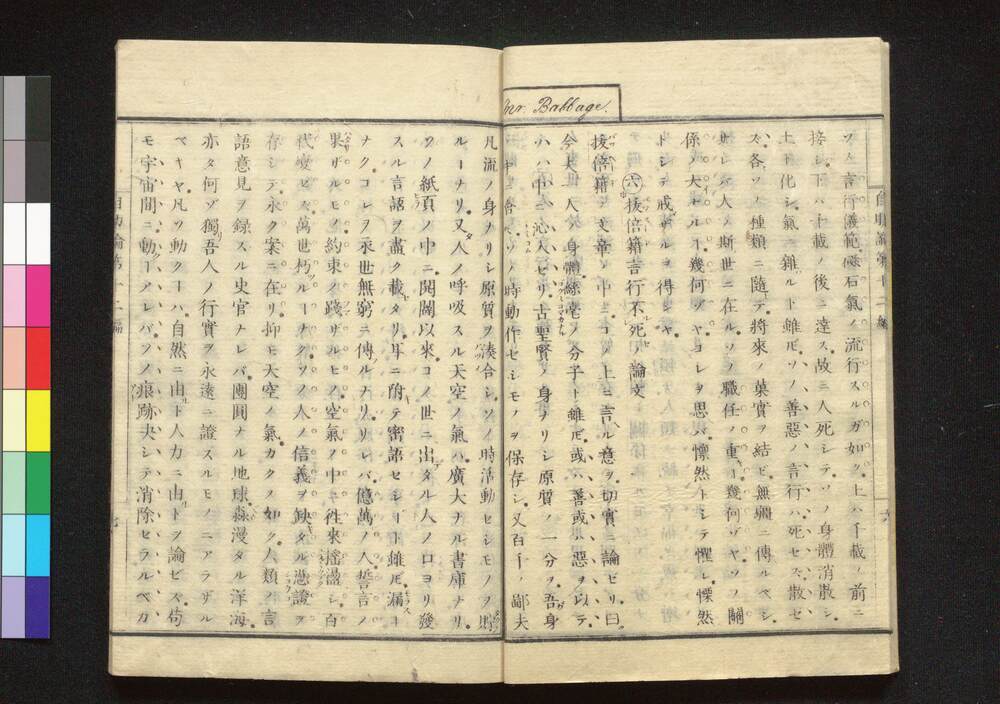 Mr. Babbage.
ソノ言行儀範。磁石氣ノ流行スルガ如ク。上ハ千載ノ前ニ
接シ。下ハ千載ノ後ニ達ス。故ニ人死シテ。ソノ身體消散シ。
土ト化シ氣ニ雜ルト雖𪜈。ソノ善惡ノ言行ハ死セズ散ゼ
ズ。各ソノ種類ニ隨テ將來ノ菓實ヲ結ビ。無窮ニ傳ルベシ
ソレ人ノ斯世ニ在ルソノ職任ノ重キヿ幾何ゾヤ。ソノ關
係ノ大ナルヿ幾何ゾヤ。コレヲ思ヘバ慄然トシテ懼レ慄然
トシテ戒ザルヲ得ンヤ。
六 拔倍籍言行不死ノ論文
拔倍籍ノ文章ノ中ニ。コノ上ニ言ヘル意ヲ切實ニ論ゼリ。曰。
今世ノ人ノ身體。絲毫ノ分子ト雖𪜈。或ハ善或ハ惡ヲ以テ。
ソノ中ニ沁入セリ。古聖賢ノ身ナリシ原質ノ一分ヲ。吾身
ノ時動作セシモノヲ保存シ。又百千ノ鄙夫
凡流ノ身ナリシ原質ヲ湊合シ。ソノ時活動セシモノヲ貯
ルヿナリ。又人ノ呼吸スル天空ノ氣ハ。廣大ナル書庫ナリ。
ソノ紙頁ノ中ニ。開闢以來。コノ世ニ出タル人ノ口ヨリ發
スル言語ヲ盡ク載タリ。耳ニ附テ密語セシヿト雖𪜈。漏ヿ
ナク。コレヲ永世無窮ニ傳ルナリ。サレバ億萬ノ人。誓言ノ
果ザルモノ。約束ノ踐ザルモノ。空氣ノ中ニ往來搖盪シ。百
代變ゼズ。萬世朽ルヿナク。ソノ人ノ信義ヲ缺タル憑證ヲ
存シテ永ク案ニ在リ。抑モ天空ノ氣。カクノ如ク。人類ノ言
語意見ヲ録スル史官ナレバ。團圓ナル地球。淼漫タル洋海。
亦タ何ゾ獨吾人ノ行實ヲ永遠ニ證スルモノニアラザル
ベキヤ。凡ソ動クヿハ。自然ニ由ト人力ニ由トヲ論ゼズ。苟
モ宇宙間ニ動クヿアレバ。ソノ痕跡決シテ消除セラルベカ
自助論第十一編